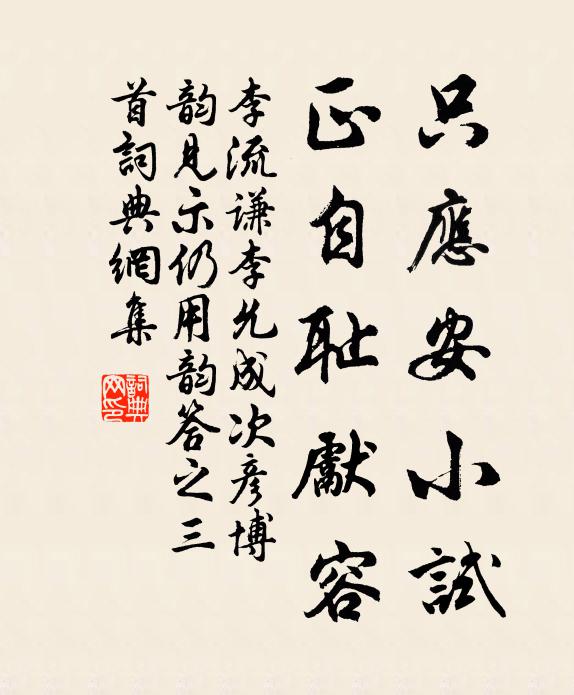 只應安小試
正自耻獻容
李流謙李允成次彥博
韵見示仍用韵答之三
首詞典網集
詞典網印